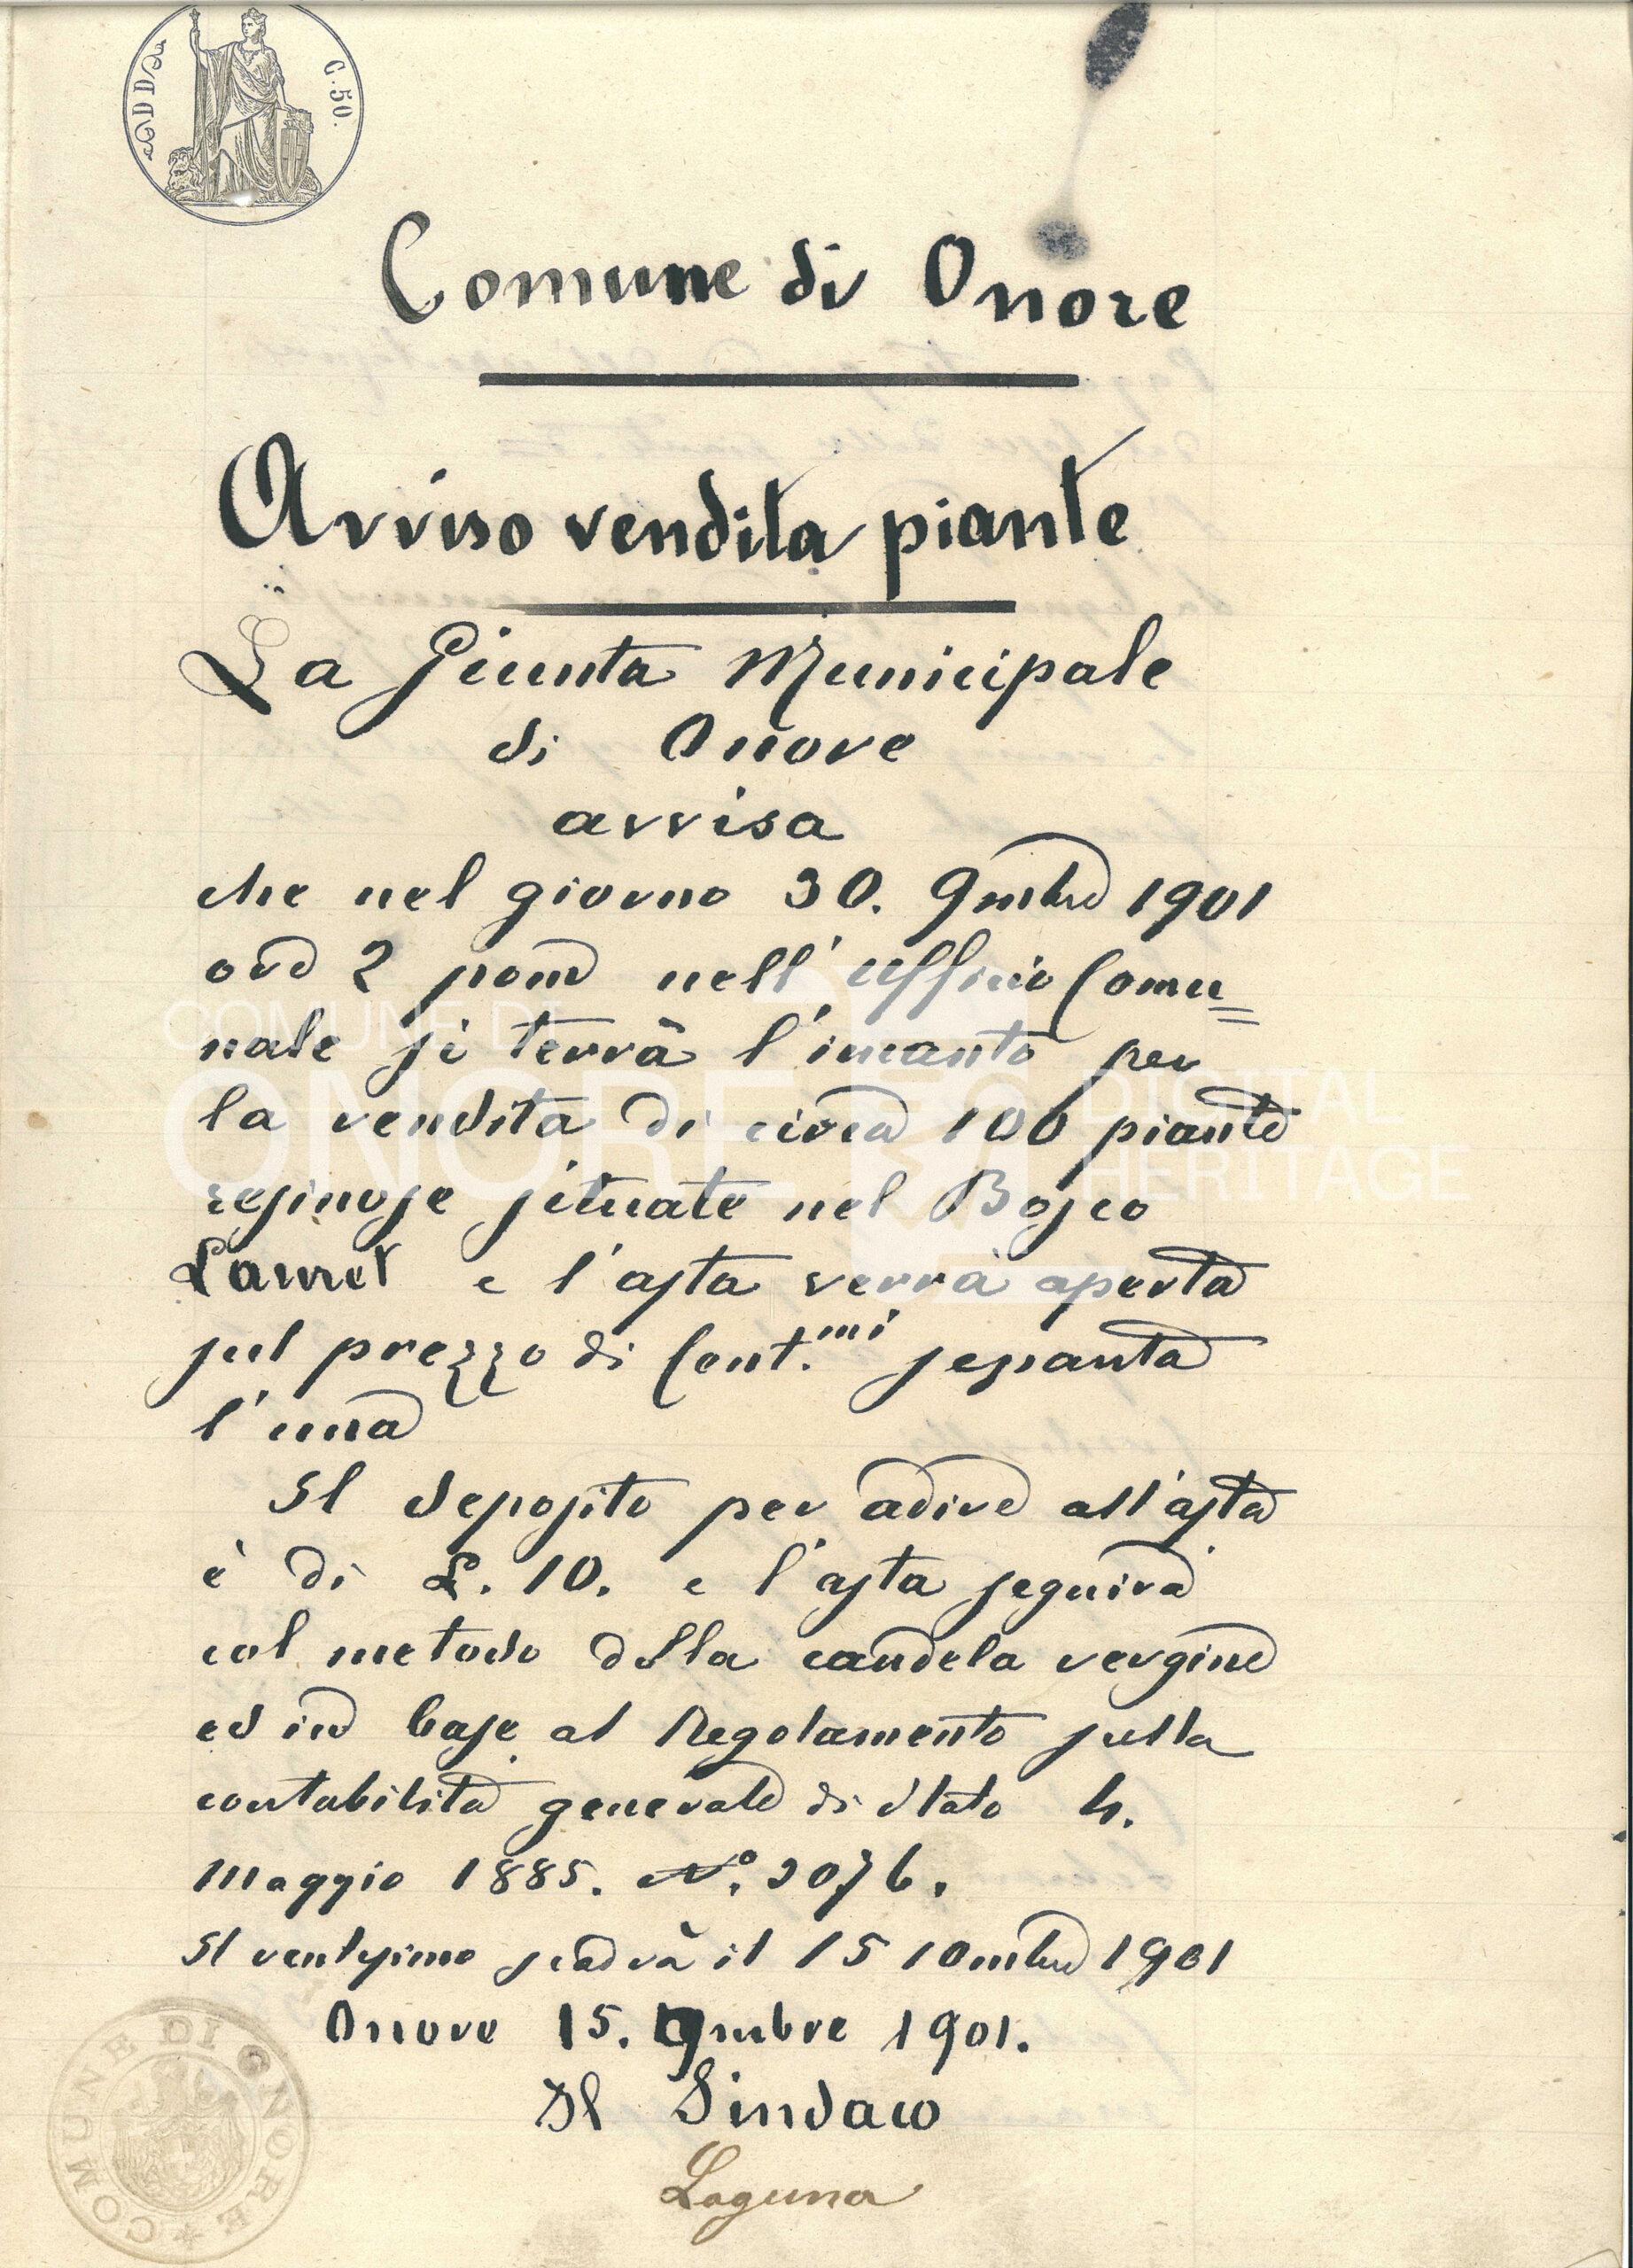 C. 50.
Comune di Onore
Avviso vendita piante
La Giunta Municipale
di Onore
avvisa
che nel giorno 30. 9mbre 1901
ore 2 pom nell'Ufficio Comu=
nale si terrà l'incanto per
la vendita di circa 100 piante
resinose situate nel Bosco
e l'asta verrà aperta
sul prezzo di Cent.mi sessanta
l'una
Il deposito per adire all'asta
è di L. 10. e l'asta seguirà
col metodo della candela vergine
ed in base al Regolamento sulla
contabilità generale di Stato 4.
Maggio 1885. N.° 3076.
Il ventesimo scadrà il 15 10mbre 1901
Onore 15. 9mbre 1901.
Il Sindaco
Laguna
COMUNE DI ONORE
COMUNE DI
ONORE
DIGITAL
HERITAGE